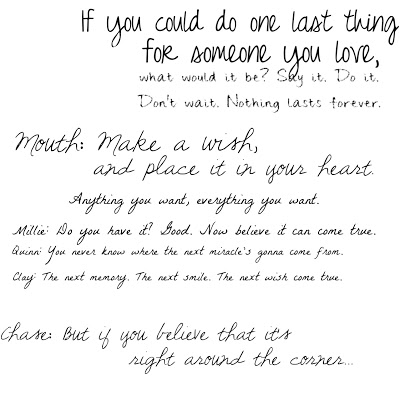 If you could do one last thing
for someone you love,
what would it be? Say it. Do it.
Don't wait. Nothing lasts forever.
Mouth: Make a wish,
and place it in your heart.
Anything you want, everything you want.
Millie: Do you have it? Good. Now believe it can come true.
Quinn: You never know where the next miracle's gonna come from.
Clay: The next memory. The next smile. The next wish come true.
Chase: But if you believe that it's
right around the corner...